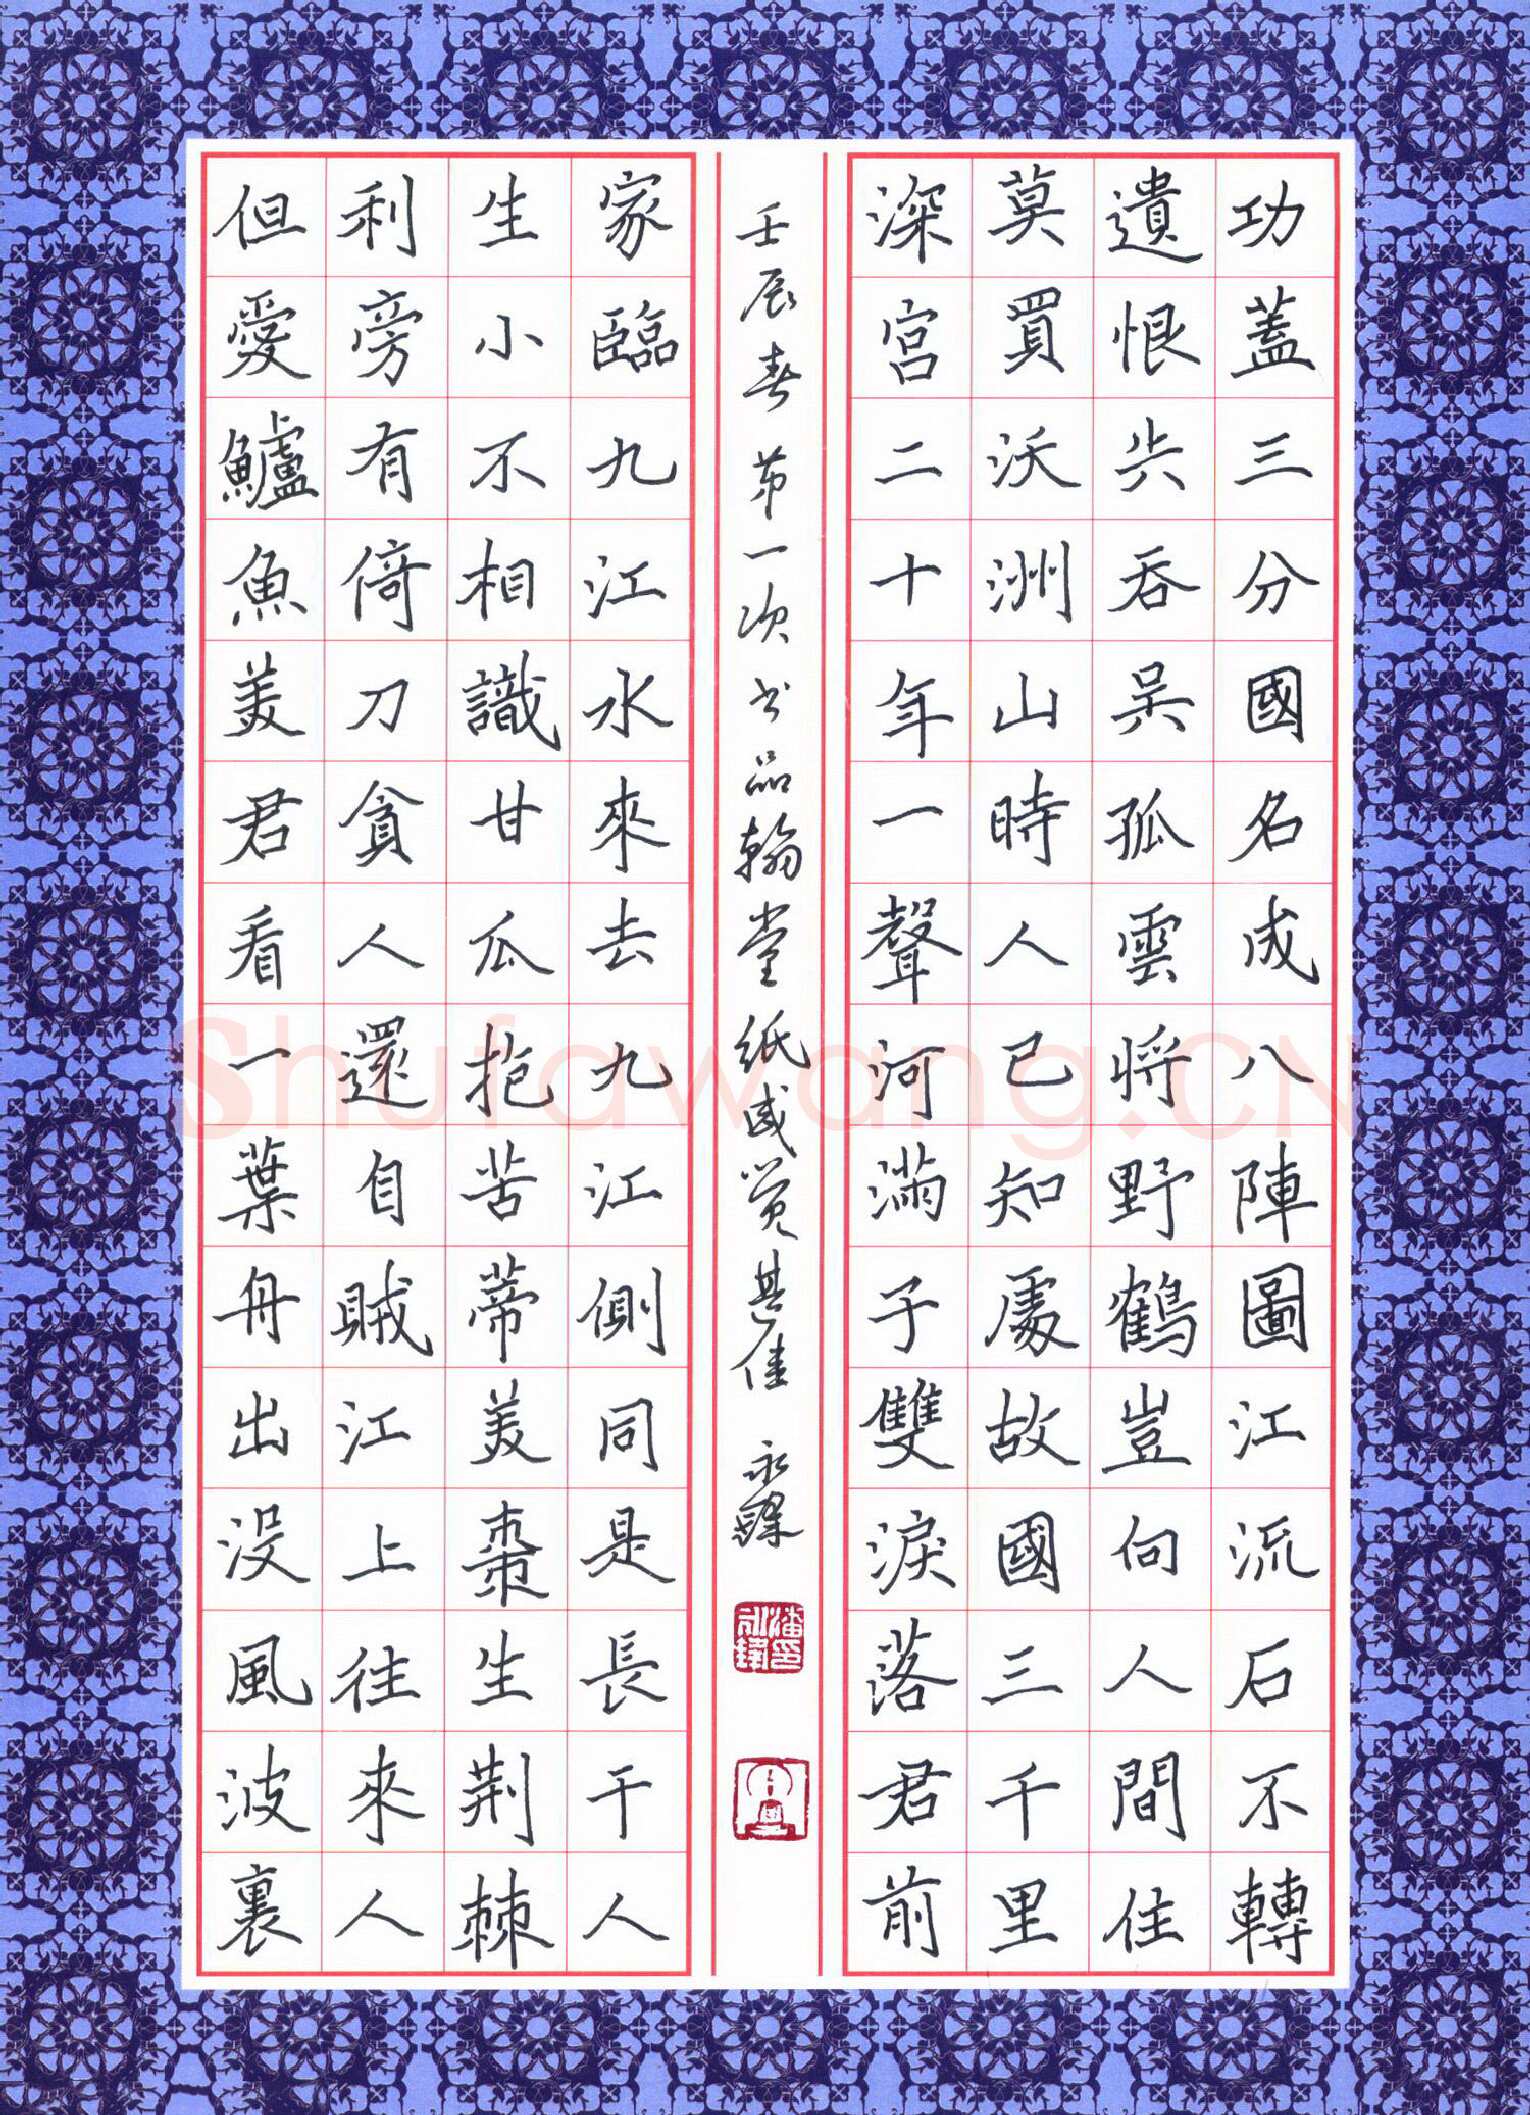 功蓋三分國名成八陣圖江流石不轉
遺恨失吞吴孤雲將野鶴豈向人間住
莫買沃洲山時人已知處故國三千里
深宮二十年一聲河滿子雙淚落君前
壬辰春第一次书品翰堂纸感觉甚佳 永
家臨九江水來去九江側同是長干人
生小不相識甘瓜抱苦蒂美棗生荆棘
利旁有倚刀貪人還自賊江上往來人
但愛鱸魚美君看一葉舟出没風波裏
Shufawang.CN